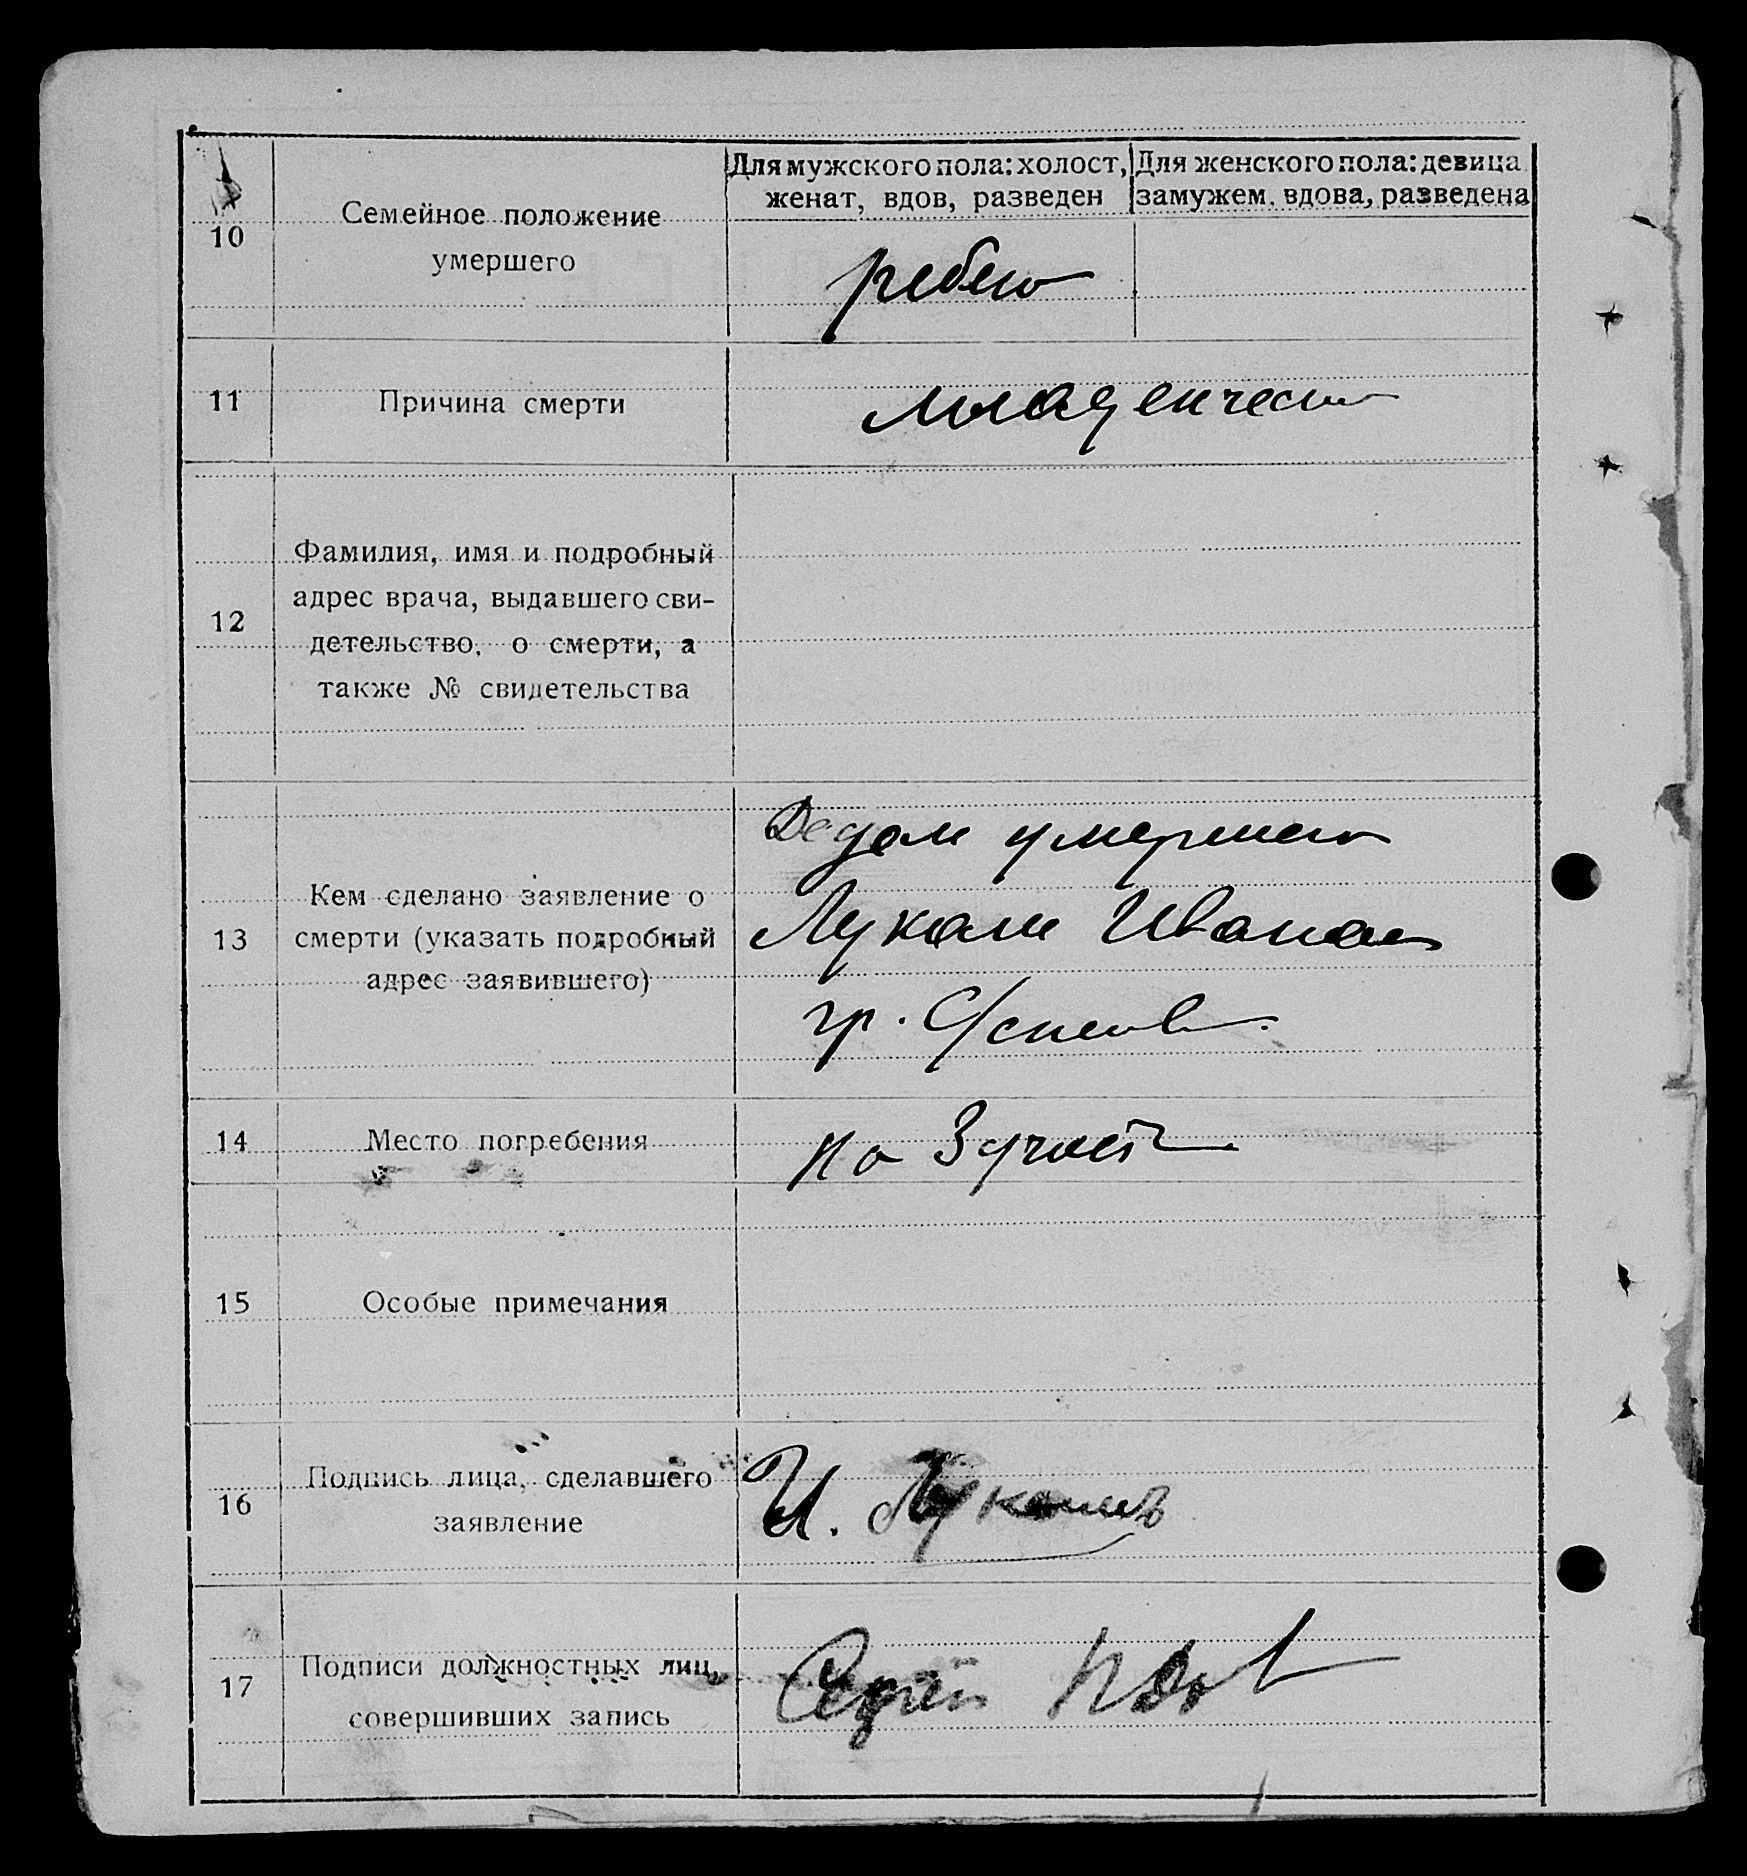 Для мужского пола: холост,
женат, вдов, разведен
Для женского пола: девица
замужем, вдова, разведена
10
Семейное положение
умершего
ребено
11
Причина смерти
младенческ
12
Фамилия, имя и подробный
адрес врача, выдавшего сви-
детельство, о смерти, а
также № свидетельства
13
Кем сделано заявление о
смерти (указать подробный
адрес заявившего)
Дедом умершего
Иваном
гр.
14
Место погребения
на 3 участ
15
Особые примечания
16
Подпись лица, сделавшего
заявление
И.
17
Подписи должностных лиц,
совершивших запись